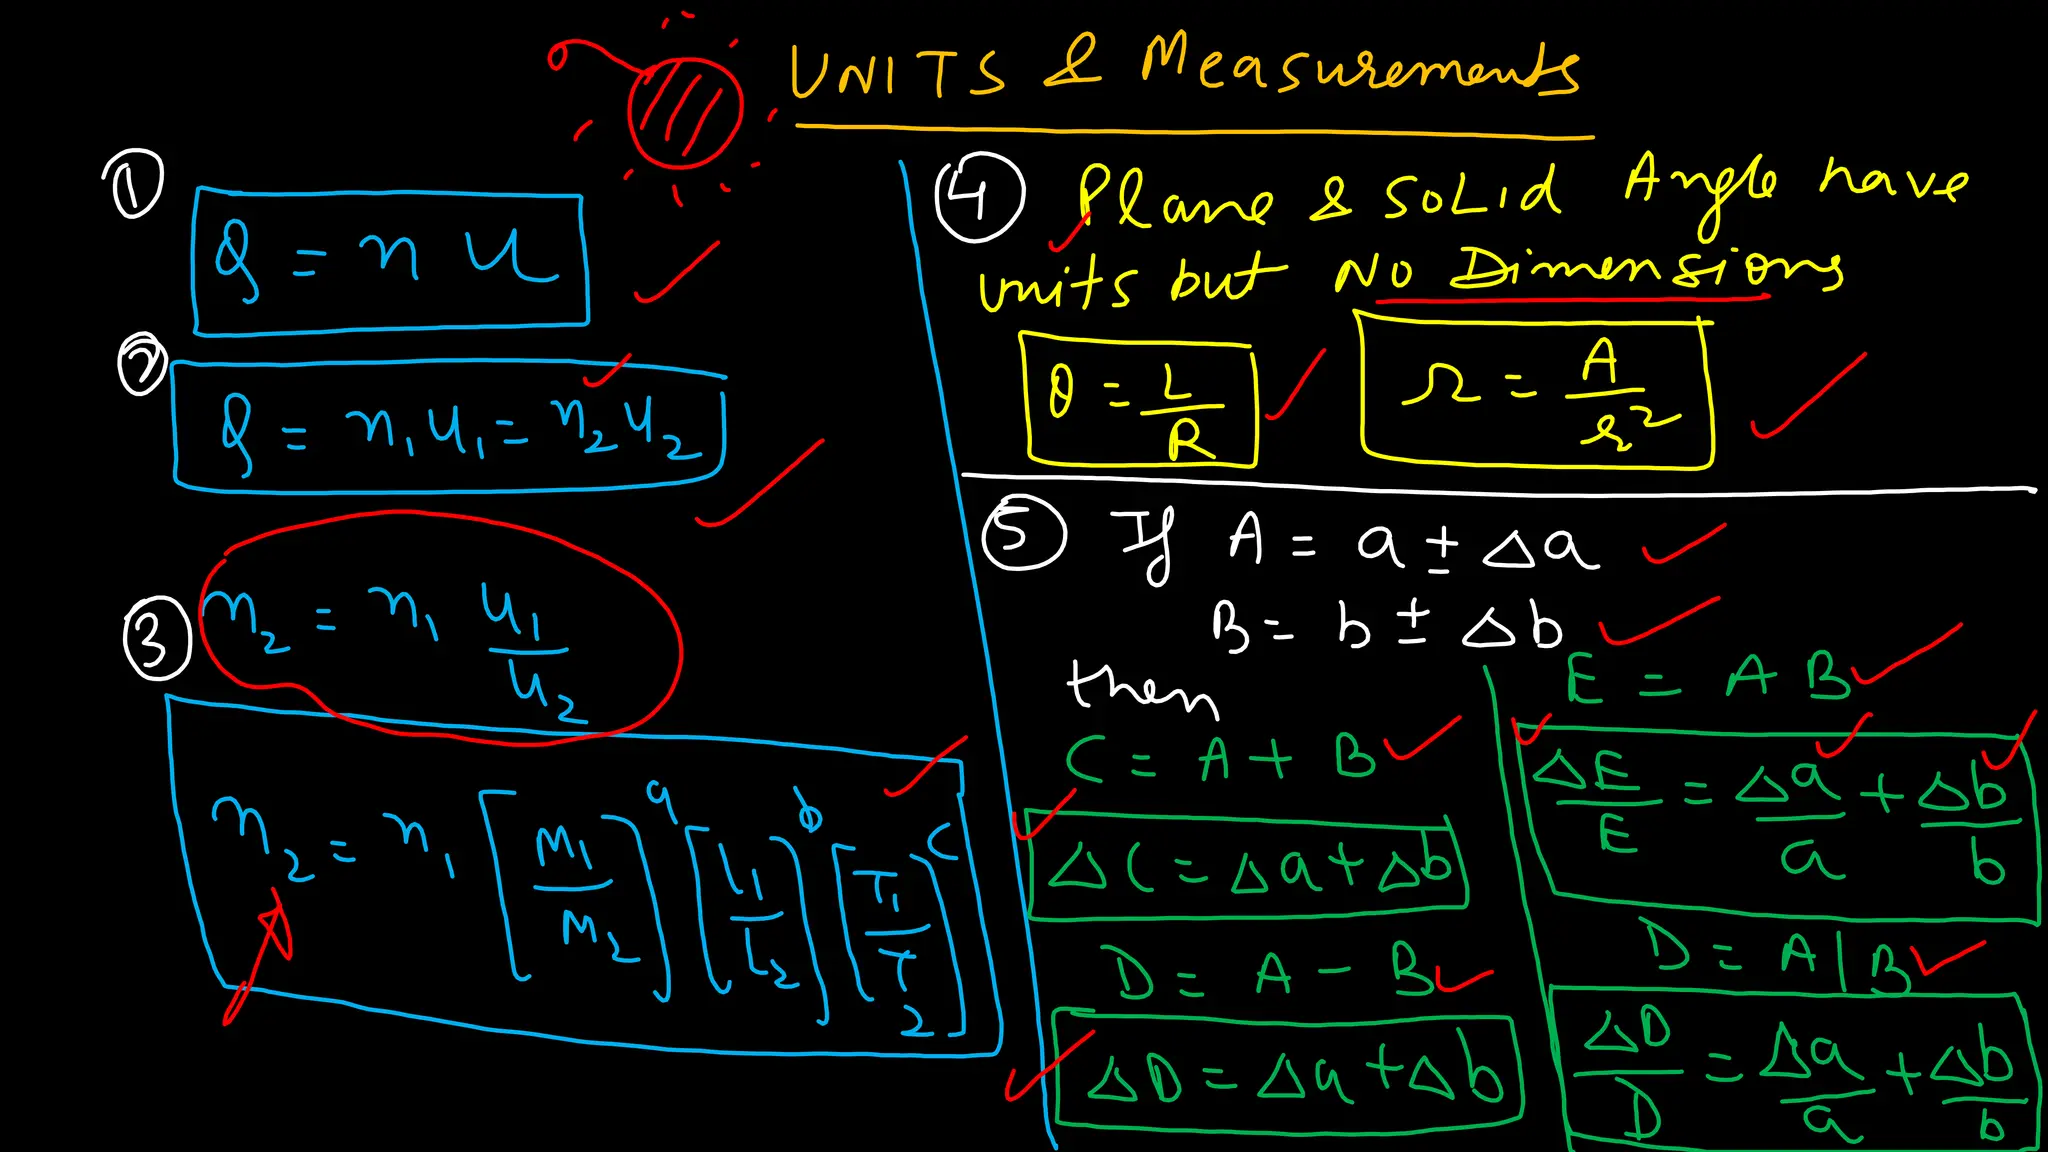 UNITS & Measurements
①
Q = n u
②
Q = n₁u₁ = n₂u₂
③
n₂ = n₁ u₁/u₂
n₂ = n₁ [M₁/M₂]ᵃ [L₁/L₂]ᵇ [T₁/T₂]ᶜ
④ Plane & SoLid Angle have
units but No Dimensions
θ = L/R
Ω = A/r²
⑤ If A = a ± Δa
B = b ± Δb
then
C = A + B
ΔC = Δa + Δb
D = A - B
ΔD = Δa + Δb
E = A B
ΔE/E = Δa/a + Δb/b
D = A|B
ΔD/D = Δa/a + Δb/b